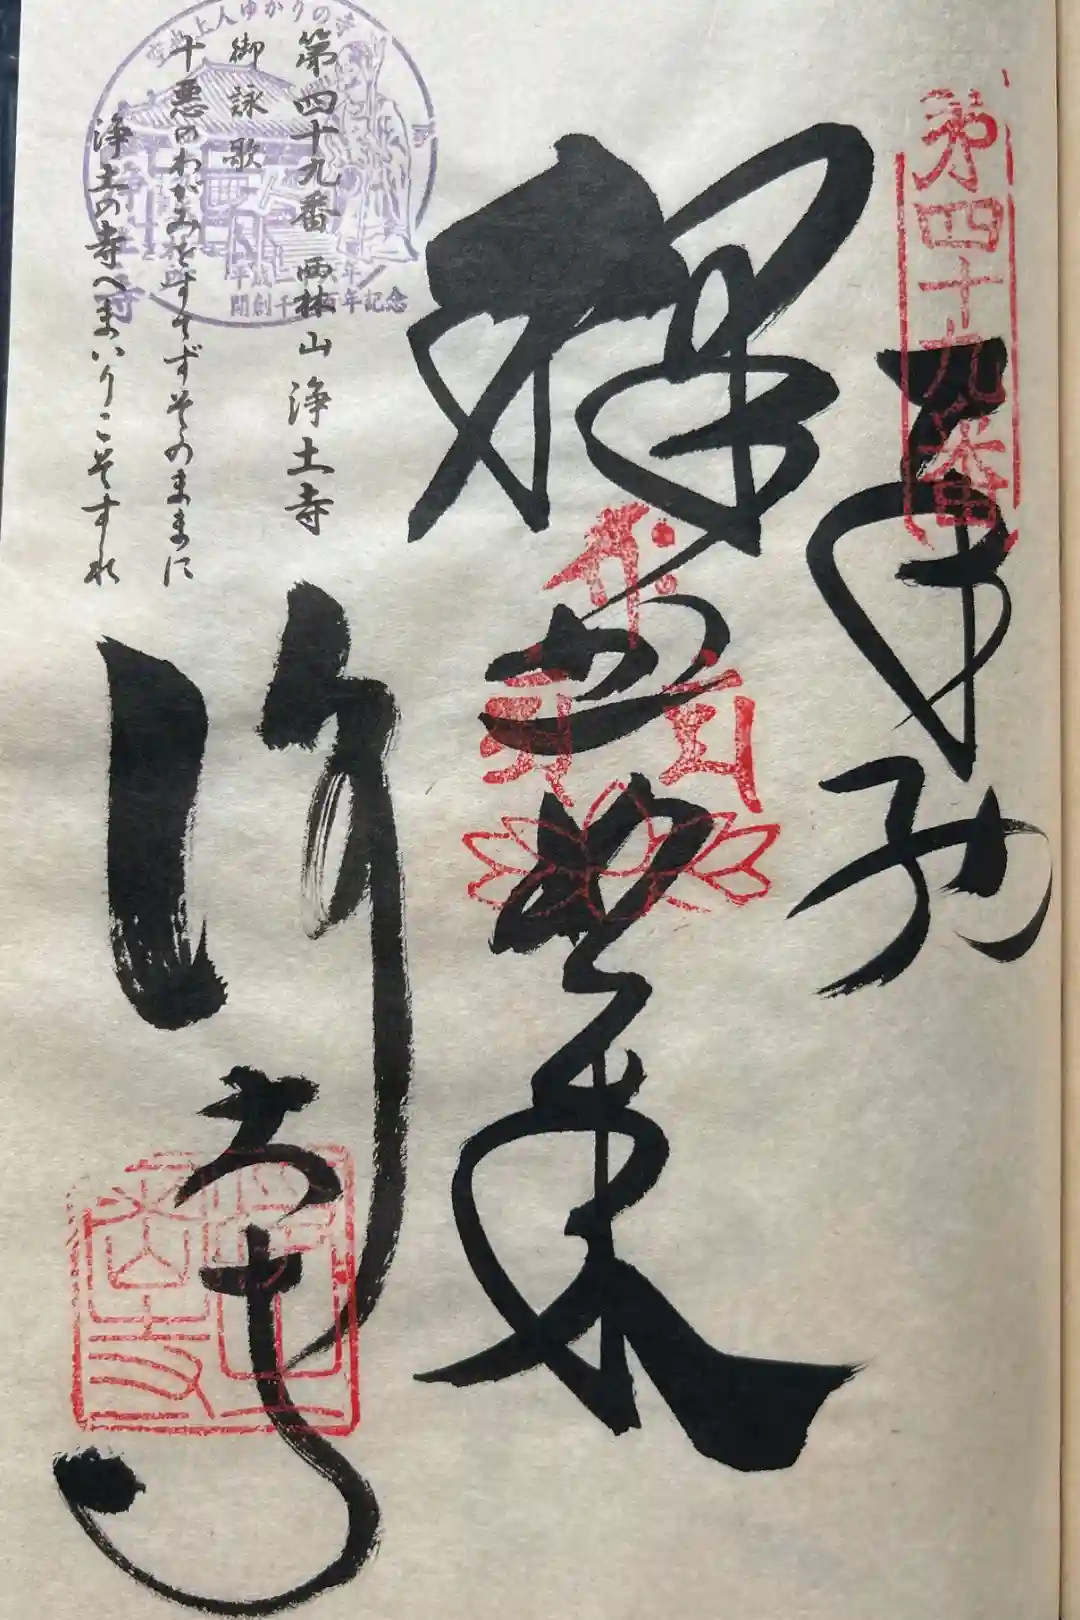 第四十九番
奉納
釋迦如来
浄土寺
第四十九番 西林山 浄土寺
御詠歌
十悪のわがみをすてずそのままに
浄土の寺へまいりこそすれ
上人ゆかりの
開創千二百年記念